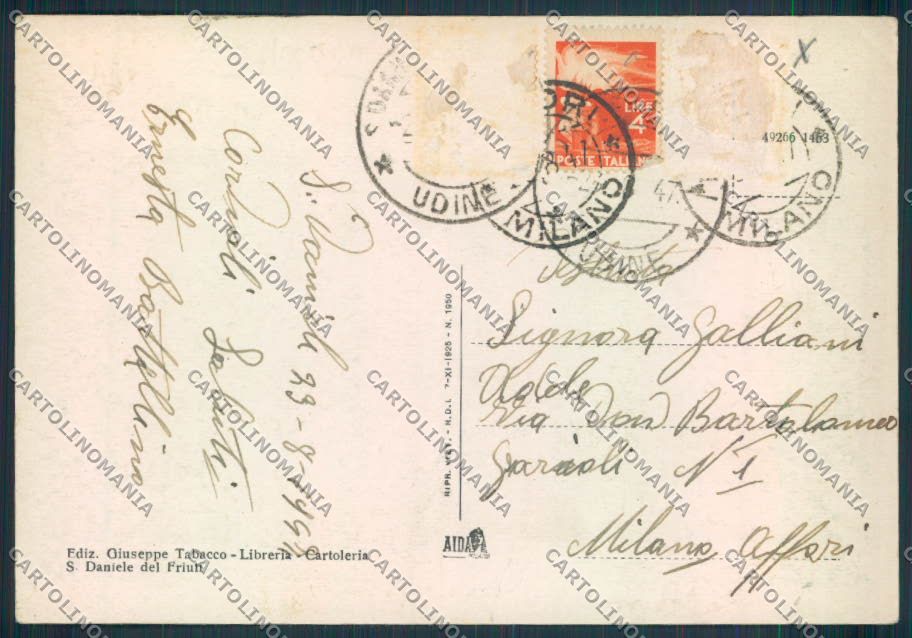 S. Daniele 23-8-1947
Cordiali Saluti
Ernesta Battellino
Ediz. Giuseppe Tabacco - Libreria - Cartoleria
S. Daniele del Friuli
RIPR. VIET. - R.D.L. 7-XI-1925 - N. 1950
AIDA
UDINE
MILANO
LIRE 4
POSTE ITALIANE
UDINE
47
MILANO
49266 1463
Signora Galliani
Via Don Bartolomeo
N 1
Milano Affori
CARTOLINOMANIA